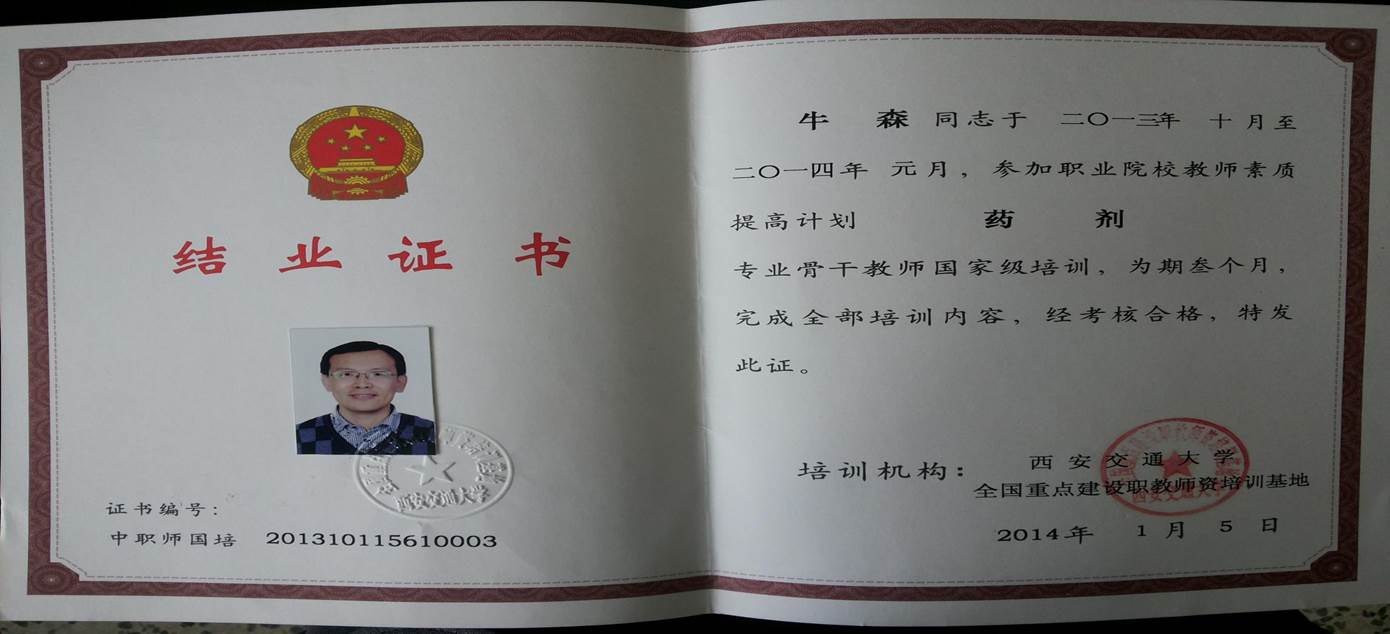 结业证书
西安交通大学
证书编号：
中职师国培 201310115610003
牛 森 同志于 二〇一三年 十月至
二〇一四年 元月，参加职业院校教师素质
提高计划 药 剂
专业骨干教师国家级培训，为期叁个月，
完成全部培训内容，经考核合格，特发
此证。
培训机构：
西安交通大学
全国重点建设职教师资培训基地
2014年 1月 5日
西安交通大学